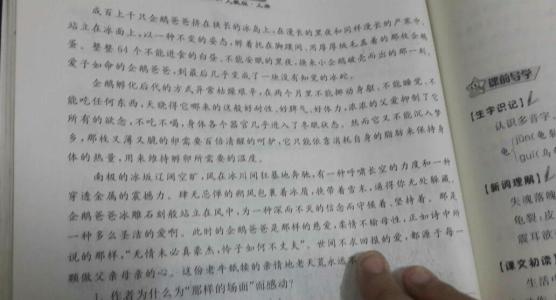 成百上千只企鹅爸爸挤在狭长的冰岛上,在漫长的黑夜和同样漫长的严寒中,
站立在冰面上,以一种不变的姿态,孵着托在脚蹼间、用厚厚绒毛盖着的那枚企鹅
蛋。整整64个不能进食的白昼、不能安眠的黑夜,换来小企鹅破壳而出的那一刻,
爱子如命的企鹅爸爸,到最后几乎变成了一块没有知觉的冰砣。
企鹅孵化后代的方式异常枯燥艰辛,在两个月里不能挪动身躯,不能睡觉,不
能吃任何东西,天晓得它哪来的这般好耐性、好脾气、好体力,浓浓的父爱抑制了它
所有的欲念,不吃不喝,身体各个器官几乎进入了冬眠状态。然而它又不能沉入梦
乡,那枚又薄又脆的卵需要百倍清醒的呵护,它只能依靠消耗自身的脂肪来保持身
体的热量,用来维持孵卵所需要的温度。
南极的冰坂辽阔空旷,风在冰川间狂暴地奔驰,有一种呼啸长空的力度和一种
穿透金属的震撼力。肆无忌惮的朔风包裹着冰屑,挟带着雪末,逼得你无处躲藏。
企鹅爸爸冰雕石刻般站立在风中,为一种深而不灭的信念而守候着、坚持着。那是
一种多么圣洁的爱啊。此时的企鹅爸爸是那样的慈爱,柔情不输母性,正如诗中所
说的那样,“无情未必真豪杰,怜子如何不丈夫”。世间不求回报的爱,都源于每一
颗做父亲母亲的心。这份老牛舐犊的亲情地老天荒永远不
1. 作者为什么为“那样的场面”而感动?
课前导学
【生字识记】
认识多音字。
龟
jūn(龟
guī(乌
【新词理解】
失魂落魄
龟裂:皮
震耳欲
【课文初读】
生活